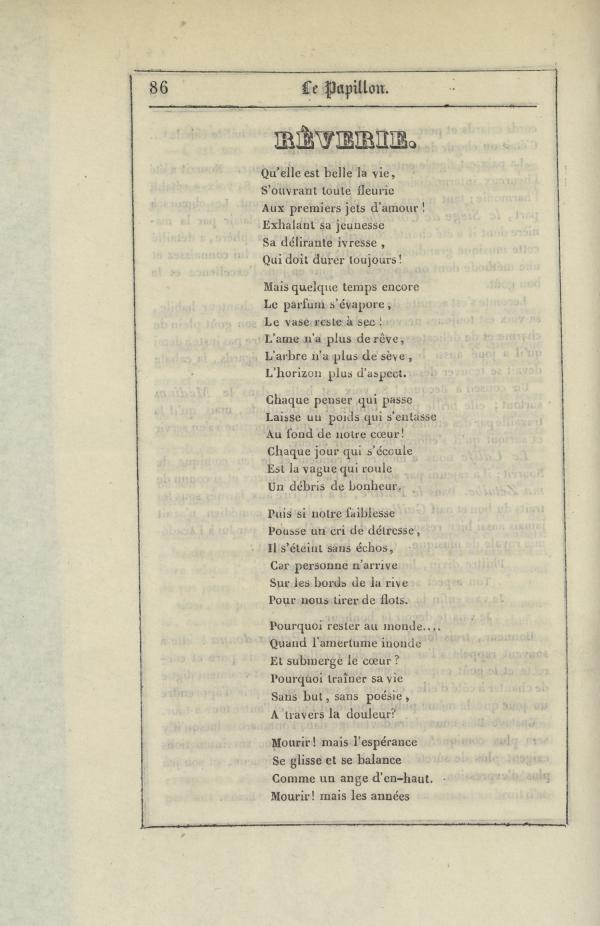 86
Le Papillon.
RÊVERIE.
Qu'elle est belle la vie,
S'ouvrant toute fleurie
Aux premiers jets d'amour!
Exhalant sa jeunesse
Sa délirante ivresse,
Qui doit durer toujours!
Mais quelque temps encore
Le parfum s'évapore,
Le vase reste à sec!
L'ame n'a plus de rêve,
L'arbre n'a plus de sève,
L'horizon plus d'aspect.
Chaque penser qui passe
Laisse un poids qui s'entasse
Au fond de notre cœur!
Chaque jour qui s'écoule
Est la vague qui roule
Un débris de bonheur.
Puis si notre faiblesse
Pousse un cri de détresse,
Il s'éteint sans échos,
Car personne n'arrive
Sur les bords de la rive
Pour nous tirer de flots.
Pourquoi rester au monde....
Quand l'amertume inonde
Et submerge le cœur?
Pourquoi traîner sa vie
Sans but, sans poésie,
A travers la douleur?
Mourir! mais l'espérance
Se glisse et se balance
Comme un ange d'en-haut.
Mourir! mais les années